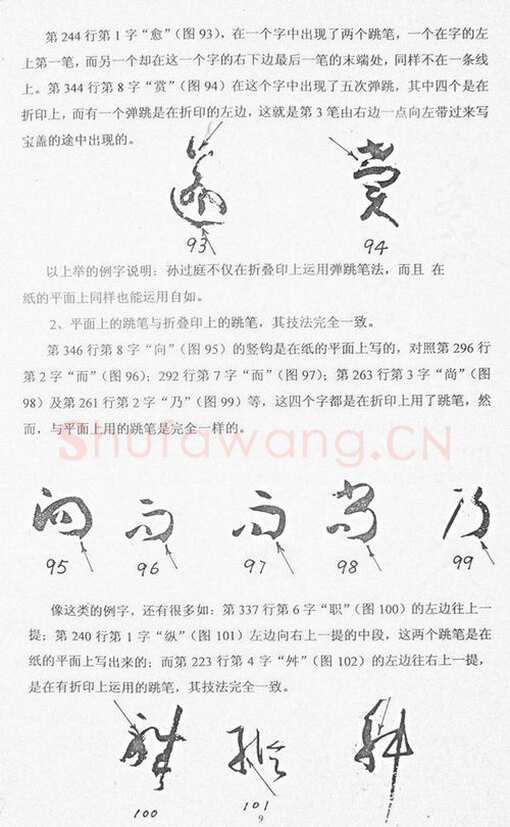 第 244 行第 1 字“愈”(图 93)，在一个字中出现了两个跳笔，一个在字的左
上第一笔，而另一个却在这一个字的右下边最后一笔的末端处，同样不在一条线
上。第 344 行第 8 字“赏”(图 94) 在这个字中出现了五次弹跳，其中四个是在
折印上，而有一个弹跳是在折印的左边，这就是第 3 笔由右边一点向左带过来写
宝盖的途中出现的。
93 94
以上举的例字说明：孙过庭不仅在折叠印上运用弹跳笔法，而且 在
纸的平面上同样也能运用自如。
2、平面上的跳笔与折叠印上的跳笔，其技法完全一致。
第 346 行第 8 字“向”(图 95) 的竖钩是在纸的平面上写的，对照第 296 行
第 2 字“而”(图 96)；292 行第 7 字“而”(图 97)；第 263 行第 3 字“尚”(图
98) 及第 261 行第 2 字“乃”(图 99) 等，这四个字都是在折印上用了跳笔，然
而，与平面上用的跳笔是完全一样的。
Shufawang.CN
向 而 而 尚 乃
95 96 97 98 99
像这类的例字，还有很多如：第 337 行第 6 字“职”(图 100) 的左边往上一
提；第 240 行第 1 字“纵”(图 101) 左边向右上一提的中段，这两个跳笔是在
纸的平面上写出来的；而第 223 行第 4 字“舛”(图 102) 的左边往右上一提，
是在有折印上运用的跳笔，其技法完全一致。
100 101
9